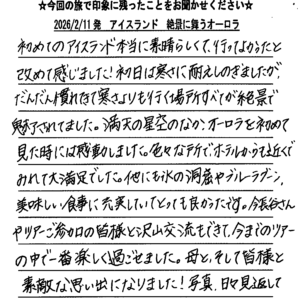 ☆今回の旅で印象に残ったことをお聞かせください☆
2026/2/11発　アイスランド　絶景に舞うオーロラ
初めてのアイスランド本当に素晴らしくて、行ってよかったと
改めて感じました！初日は寒さに耐えしのぎましたが、
だんだん慣れてきて寒さよりも行く場所すべてが絶景で
魅了されてました。満天の星空のなか、オーロラを初めて
見た時には感動しました。色々な所でホテルからも近くで
みれて大満足でした。他にも氷の洞窟やブルーラグーン、
美味しい食事に充実していてとっても良かったです。今長谷さん
やツアーご参加の皆様と沢山交流もできて、今までのツアー
の中で一番楽しく過ごせました。母と、そして皆様と
素敵な思い出になりました！写真、日々見返して